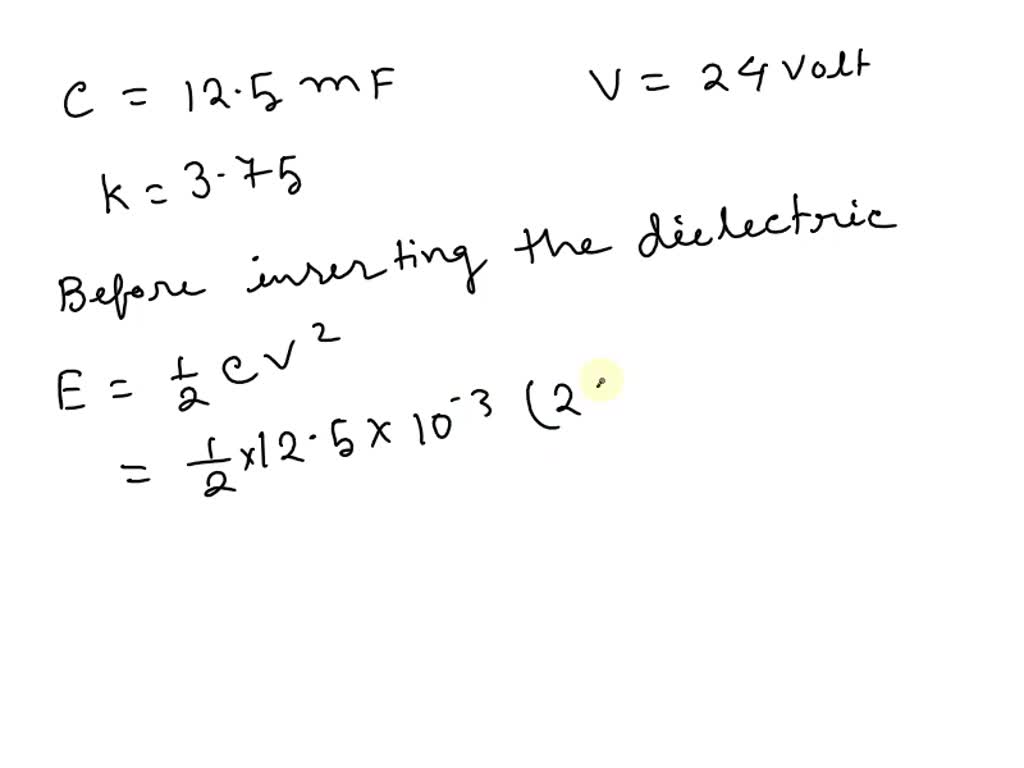 C = 12.5 mF V = 24 Volt
K = 3.75
Before inserting the dielectric
E = 1/2 CV²
= 1/2 × 12.5 × 10⁻³ (2